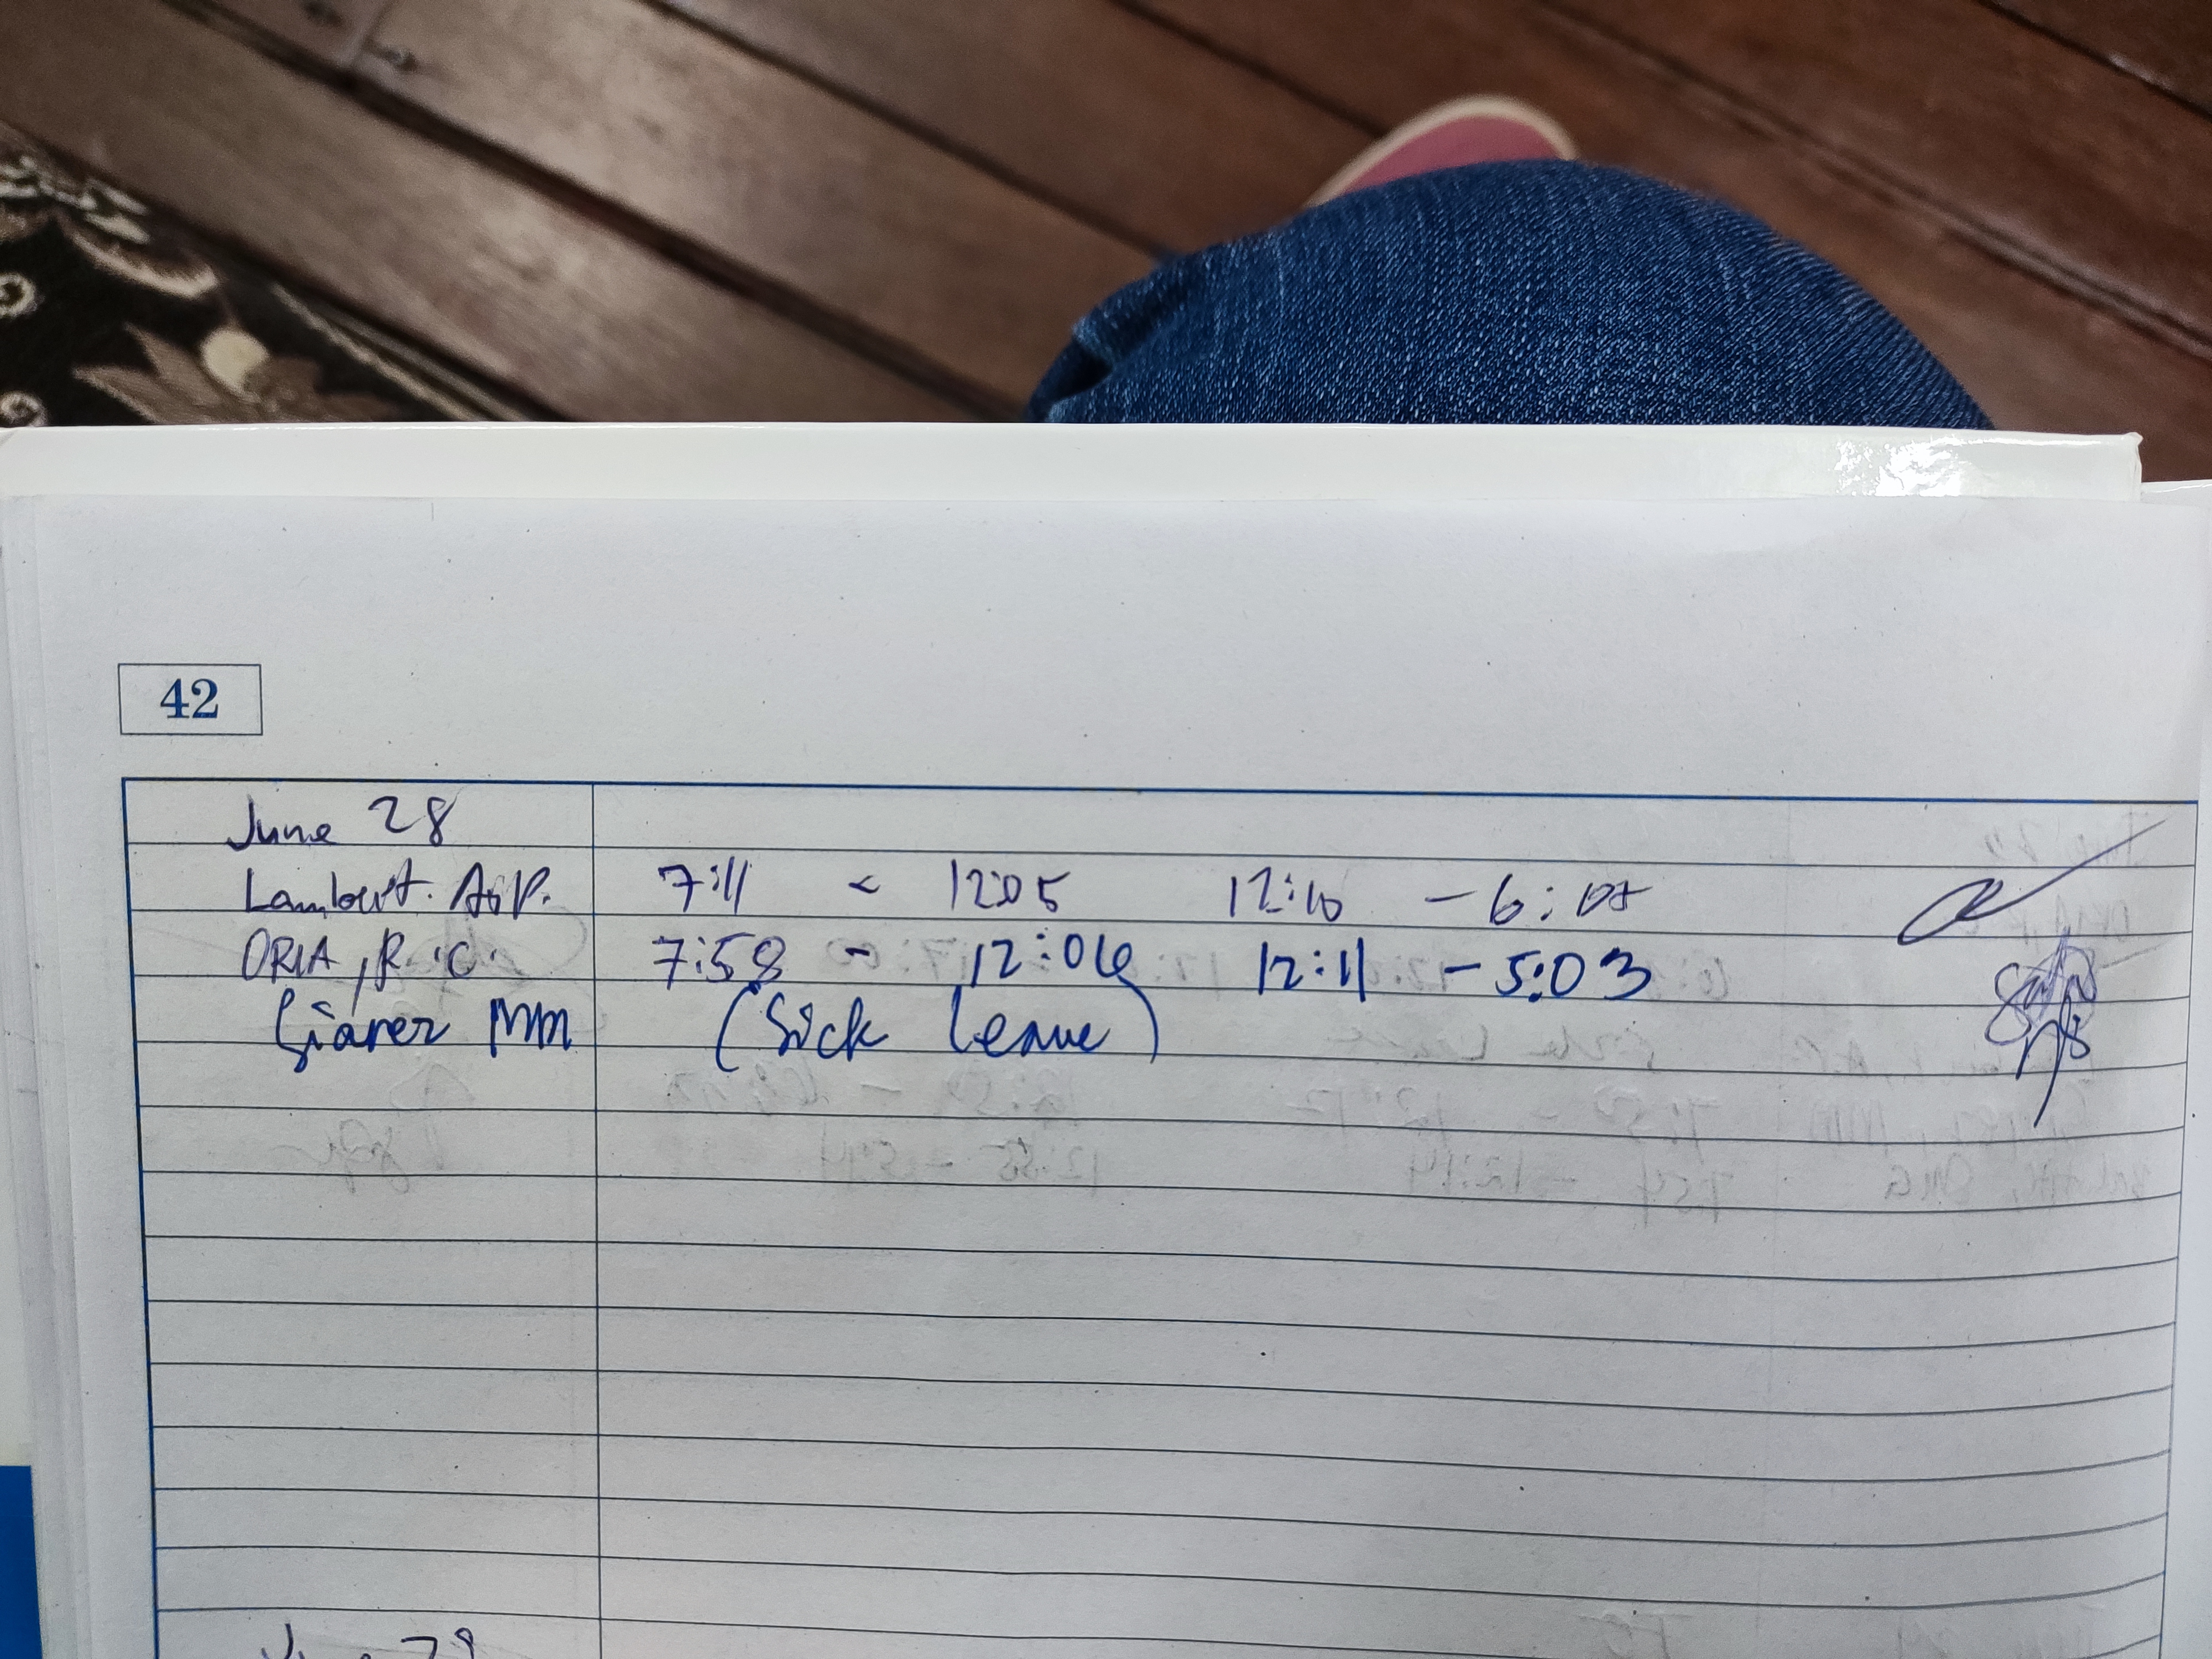 42
June 28
Lambert. A.P. 7:11 - 12:05 12:10 - 6:
ORIA, R.C. 7:58 - 12:06 12:11 - 5:03
MM (Sick leave)
June